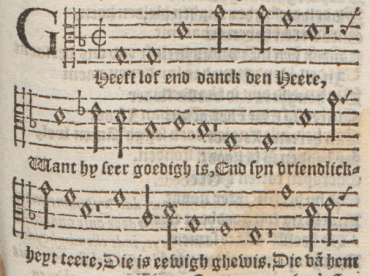 GHeeft lof end danck den Heere,
Want hy seer goedigh is, End syn vriendlick=
heyt teere, Die is eewigh ghewis, Die vā hem